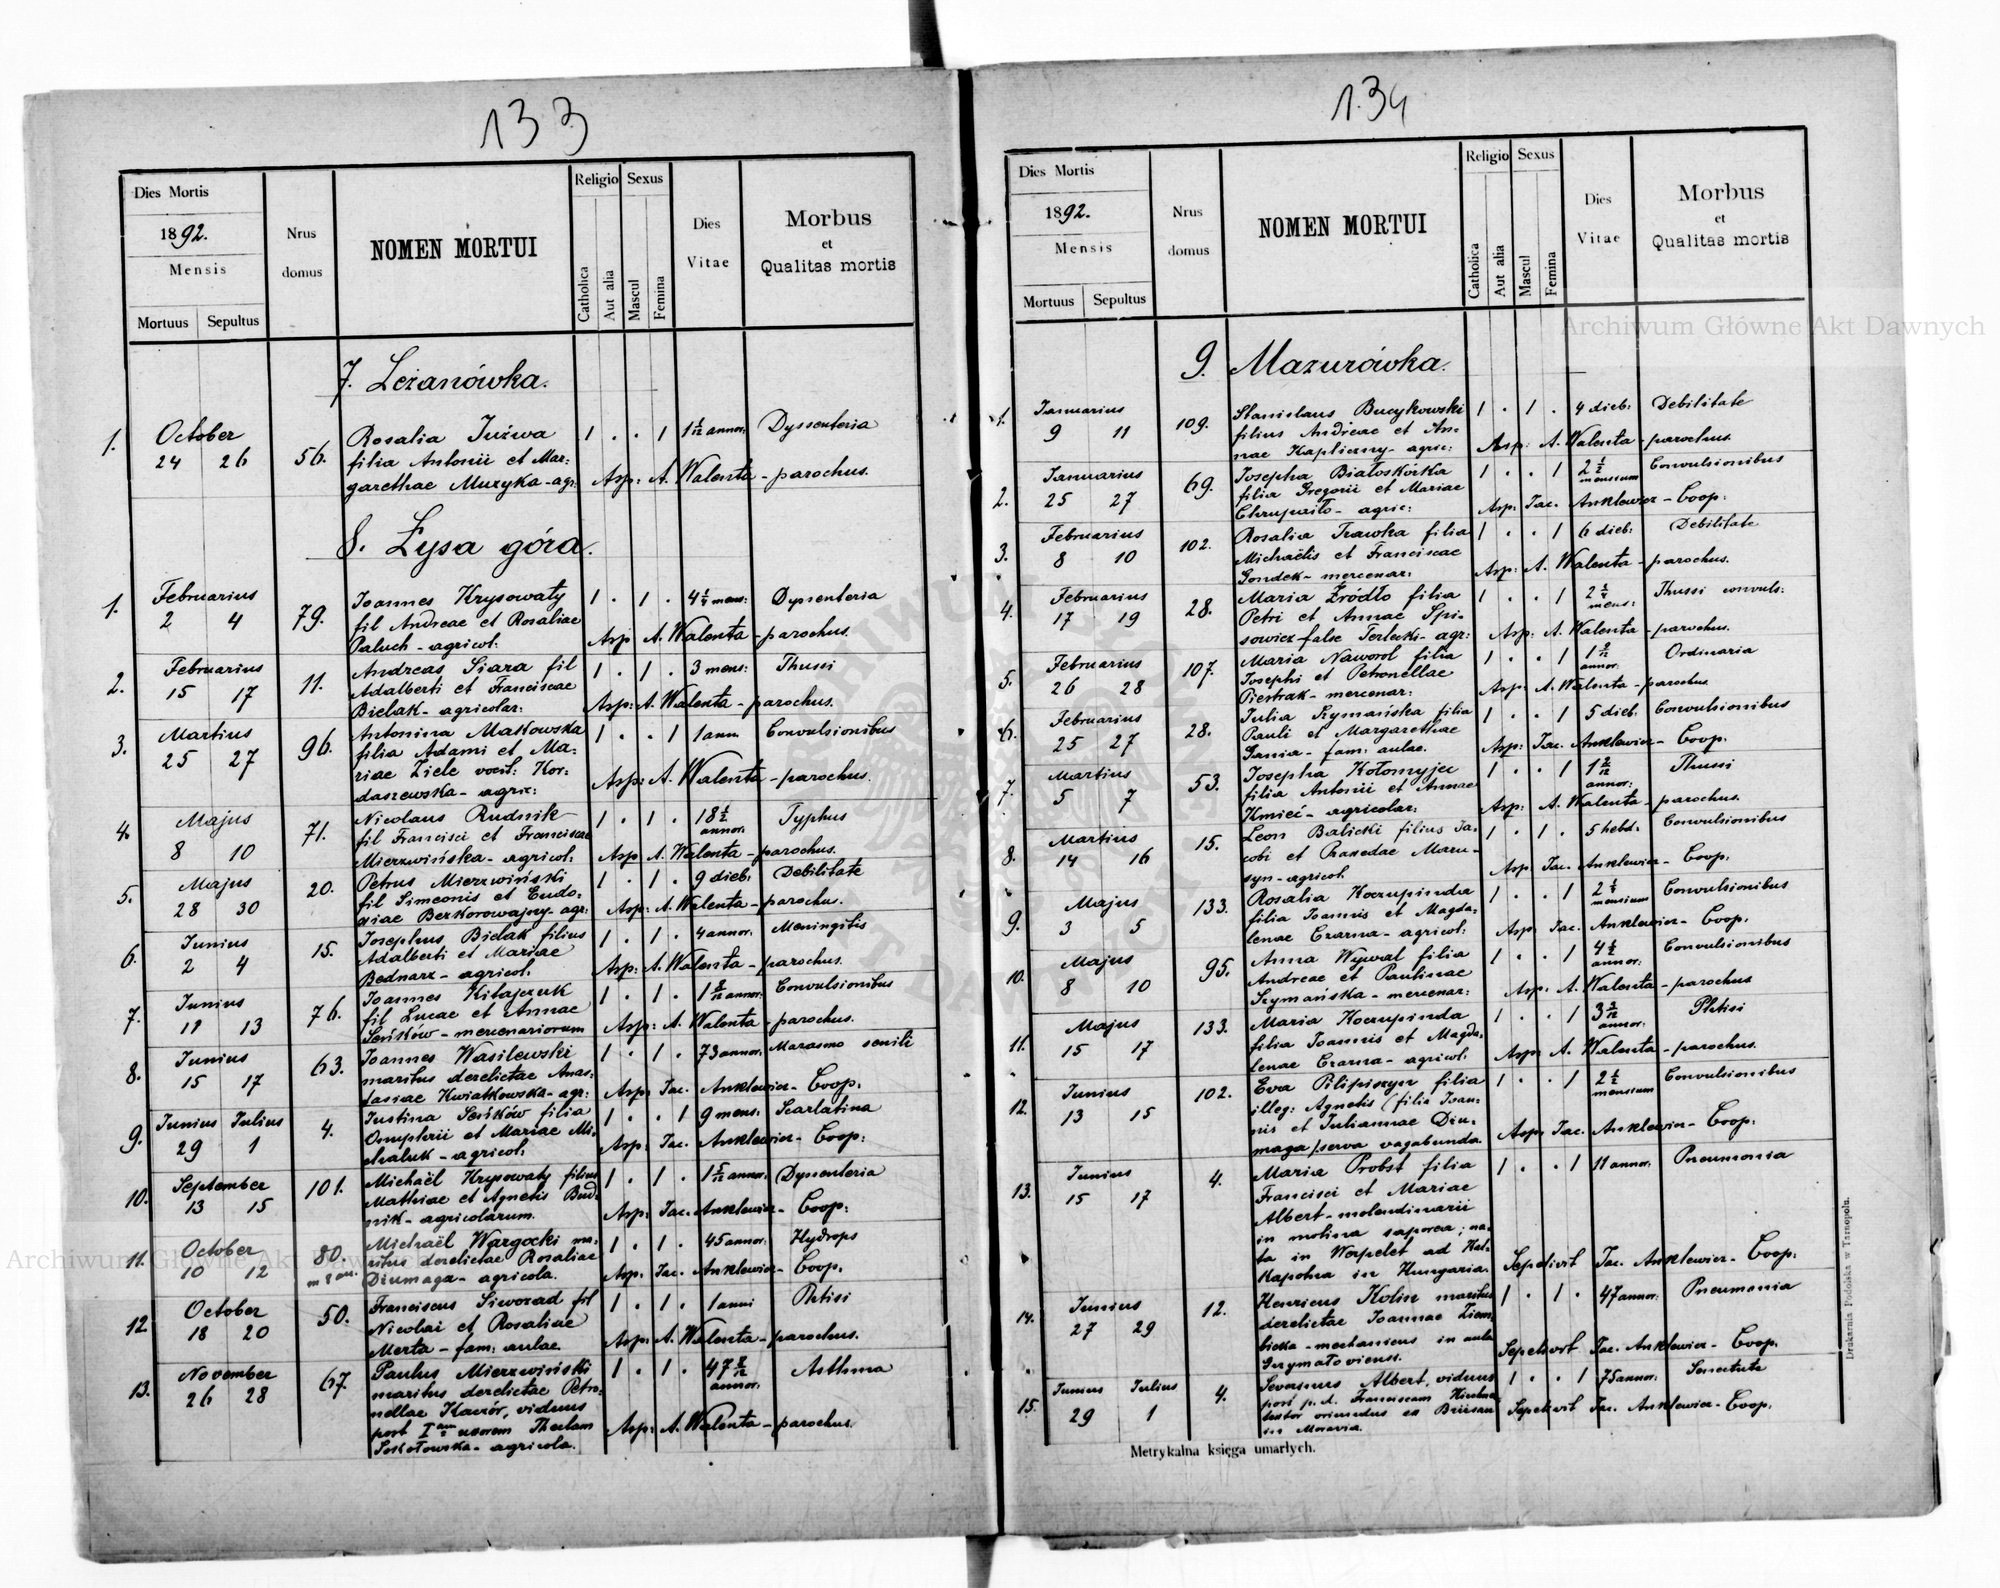 133
Dies Mortis
1892.
Mensis
Mortuus Sepultus
Nrus domus
NOMEN MORTUI
Religio
Catholica
Aut alia
Sexus
Mascul
Femina
Dies Vitae
Morbus
et
Qualitas mortis
7. Leżanówka.
1. October 24 26 56. Rosalia Juźwa 1 . . 1 1 1/12 annor: Dyssenteria
filia Antonii et Mar:
garethae Muzyka - agr: Asp: A. Walenta - parochus.
8. Łysa góra.
1. Februarius 2 4 79. Joannes Krysowaty 1 . 1 . 4 1/4 mens: Dyssenteria
fil Andreae et Rosaliae
Paluch - agricol: Asp: A. Walenta - parochus.
2. Februarius 15 17 11. Andreas Siara fil 1 . 1 . 3 mens: Thussi
Adalberti et Franciscae
Bielak - agricolar: Asp: A. Walenta - parochus.
3. Martius 25 27 96. Antonina Matkowska 1 . . 1 1 anni Convulsionibus
filia Adami et Ma:
riae Ziele vocit: Kor:
daszewska - agric: Asp: A. Walenta - parochus.
4. Majus 8 10 71. Nicolaus Rudnik 1 . 1 . 18 1/2 annor: Typhus
fil Francisci et Franciscae
Mierzwińska - agricol: Asp A. Walenta - parochus.
5. Majus 28 30 20. Petrus Mierzwiński 1 . 1 . 9 dieb: Debilitate
fil Simeonis et Eudo:
xiae Bezkorowajny - agr: Asp: A. Walenta - parochus.
6. Junius 2 4 15. Josephus Bielak filius 1 . 1 . 4 annor: Meningitis
Adalberti et Mariae
Bednarz - agricol: Asp: A. Walenta - parochus.
7. Junius 11 13 76. Joannes Kitajczuk 1 . 1 . annor: Convulsionibus
fil Lucae et Annae
Seńków - mercenariorum Asp: A. Walenta - parochus.
8. Junius 15 17 63. Joannes Wasilewski 1 . 1 . 73 annor: Marasmo senili
maritus derelictae Anas:
tasiae Kwiatkowska - agr: Asp: Jac. Anklewicz - Coop:
9. Junius Julius 29 1 4. Justina Seńków filia 1 . . 1 9 mens: Scarlatina
Onuphrii et Mariae Mi:
chaluk - agricol: Asp: Jac. Anklewicz - Coop:
10. September 13 15 101. Michaël Krysowaty filius 1 . 1 . 1 5/12 annor: Dyssenteria
Mathiae et Agnetis Bud:
nik - agricolarum. Asp: Jac. Anklewicz - Coop:
11. October 10 12 80. Michaël Wargocki ma: 1 . 1 . 45 annor: Hydrops
ritus derelictae Rosaliae
Diumaga - agricola. Asp: Jac. Anklewicz - Coop.
12 October 18 20 50. Franciscus Siworad fil 1 . 1 . 1 anni Phtisi
Nicolai et Rosaliae
Merta - fam: aulae. Asp: A. Walenta - parochus.
13. November 26 28 67. Paulus Mierzwiński 1 . 1 . 47 annor: Asthma
maritus derelictae Petro:
nellae Kaczór, viduus
post I am uxorem Theclam
Sokołowska - agricola. Asp: A. Walenta - parochus.
134
Dies Mortis
1892.
Mensis
Mortuus Sepultus
Nrus domus
NOMEN MORTUI
Religio
Catholica
Aut alia
Sexus
Mascul
Femina
Dies Vitae
Morbus
et
Qualitas mortis
9. Mazurówka.
1. Januarius 9 11 109. Stanislaus Bucykowski 1 . 1 . 4 dieb: Debilitate
filius Andreae et An:
nae Kapliczny - agric: Asp: A. Walenta - parochus.
2. Januarius 25 27 69. Josepha Białoskórka 1 . . 1 2 1/2 mensium Convulsionibus
filia Gregorii et Mariae
Chrupaiło - agric: Asp: Jac. Anklewicz - Coop:
3. Februarius 8 10 102. Rosalia Trawka filia 1 . . 1 6 dieb: Debilitate
Michaëlis et Franciscae
Gondek - mercenar: Asp: A. Walenta - parochus.
4. Februarius 17 19 28. Maria Źródło filia 1 . . 1 mens: Thussi convuls:
Petri et Annae Spi:
sowicz false Terlecki - agr: Asp: A. Walenta - parochus.
5. Februarius 26 28 107. Maria Naworol filia 1 . . 1 annor: Ordinaria
Josephi et Petronellae
Piestrak - mercenar: Asp: A. Walenta - parochus
6. Februarius 25 27 28. Julia Szymańska filia 1 . . 1 5 dieb: Convulsionibus
Pauli et Margarethae
Gania - fam: aulae. Asp: Jac. Anklewicz - Coop.
7. Martius 5 7 53. Josepha Kołomyjec 1 . . 1 1 2/12 annor: Thussi
filia Antonii et Annae
Kmieć - agricolar: Asp: A. Walenta - parochus.
8. Martius 14 16 15. Leon Balicki filius Ja: 1 . 1 . 5 hebd: Convulsionibus
cobi et Praxedae Mazu-
syn - agricol. Asp Jac. Anklewicz - Coop:
9. Majus 3 5 133. Rosalia Koczupinda 1 . . 1 2 1/2 mensium Convulsionibus
filia Joannis et Magda:
lenae Czarna - agricol: Asp: Jac. Anklewicz - Coop.
10. Majus 8 10 95. Anna Wywal filia 1 . . 1 4 1/2 annor: Convulsionibus
Andreae et Paulinae
Szymańska - mercenar: Asp: A. Walenta - parochus
11. Majus 15 17 133. Maria Koczupinda 1 . . 1 annor: Phtisi
filia Joannis et Magda
lenae Czarna - agricol: Asp: A. Walenta - parochus.
12. Junius 13 15 102. Eva Pilipiszyn filia 1 . . 1 2 1/2 mensium Convulsionibus
illeg: Agnetis (filia Joan:
nis et Juliannae Diu:
maga) serva vagabunda. Asp: Jac. Anklewicz - Coop:
13. Junius 15 17 4. Maria Probst filia 1 . . 1 11 annor: Pneumonia
Francisci et Mariae
Albert - molendinarii
in molina vaporea; na:
ta in Worpelet ad Kal:
Kapolna in Hungaria. Sepelivit Jac. Anklewicz - Coop:
14. Junius 27 29 12. Henricus Kolin maritus 1 . 1 . 47 annor: Pneumonia
derelictae Joannae Ziem:
bicka - mechanicus in aula
Grzymałoviensi. Sepelivit Jac. Anklewicz - Coop.
15. Junius Julius 29 1 4. Severinus Albert, viduus 1 . . 1 75 annor: Senectute
post p. d. Franciscam
oriundus ex
in Moravia. Sepelivit Jac. Anklewicz - Coop.
Metrykalna księga umarłych.
Drukarnia Podolska w Tarnopolu.
Archiwum Główne Akt Dawnych
Archiwum Główne Akt Dawnych